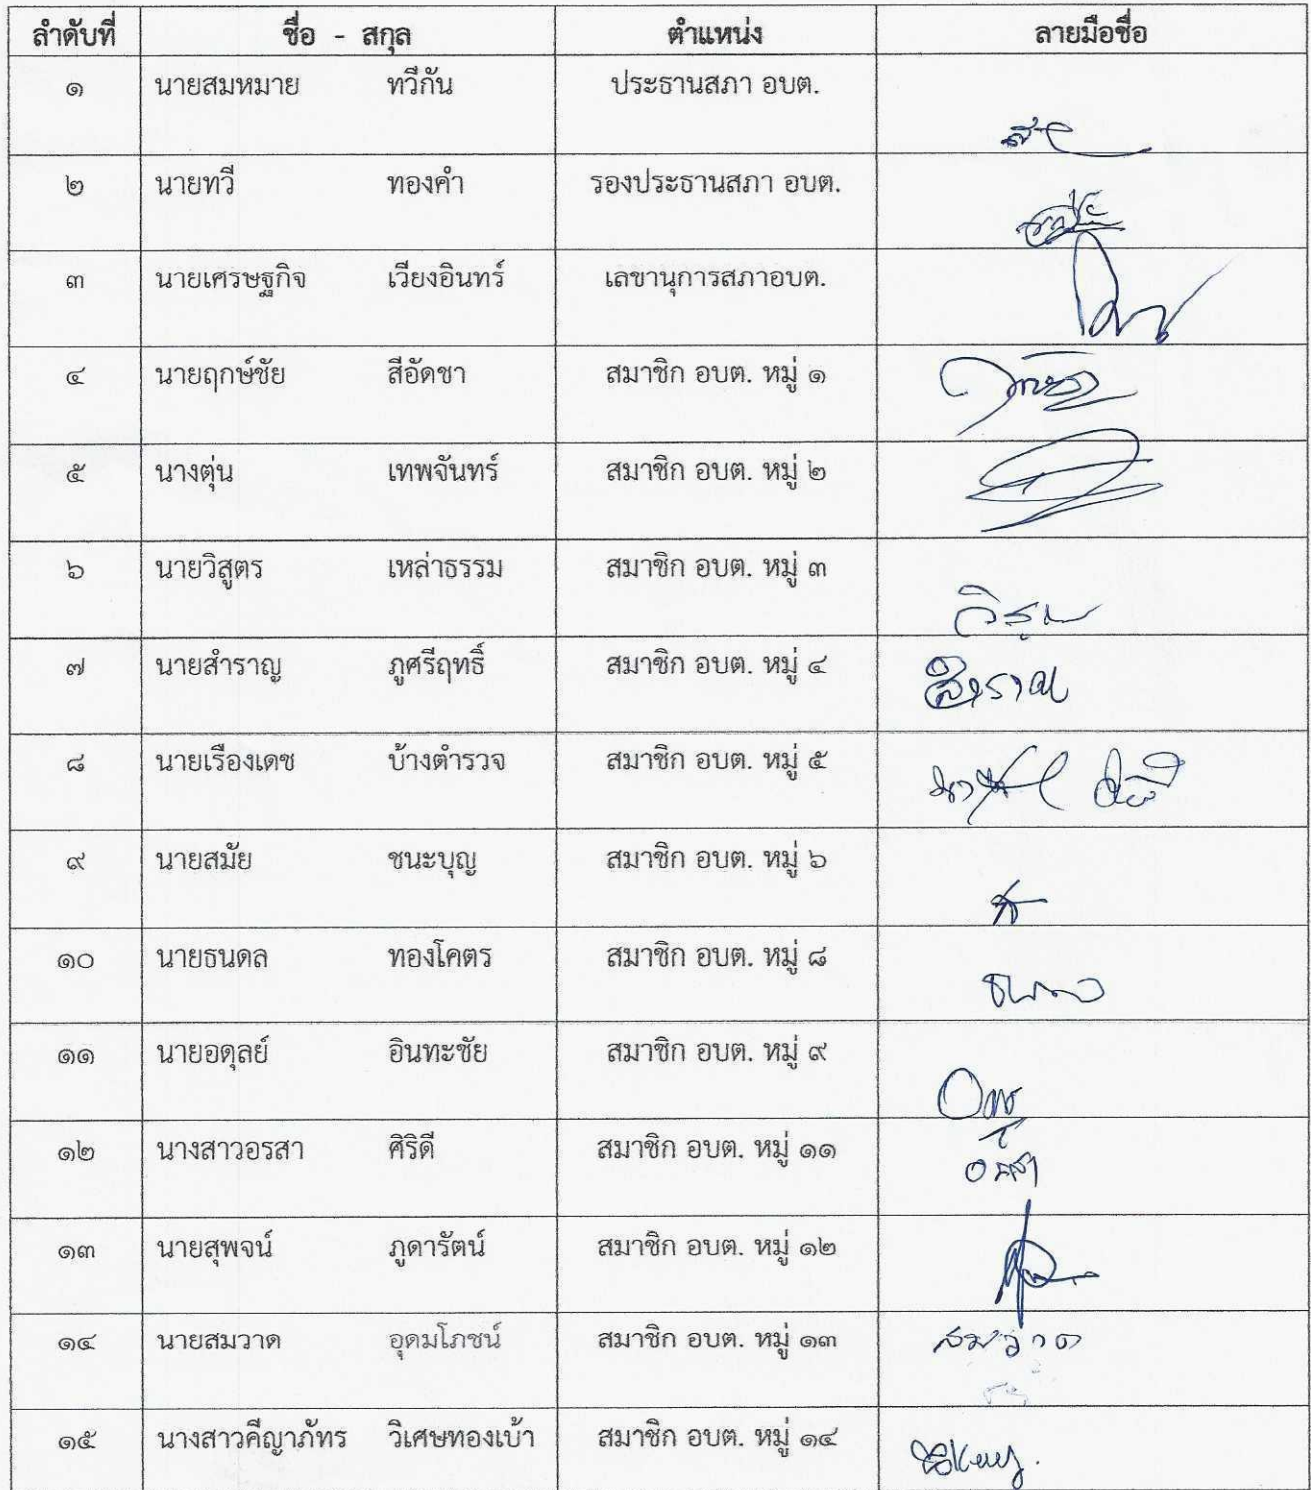 ลำดับที่ ชื่อ - สกุล ตำแหน่ง ลายมือชื่อ
๑ นายสมหมาย ทวีกัน ประธานสภา อบต.
๒ นายทวี ทองคำ รองประธานสภา อบต.
๓ นายเศรษฐกิจ เวียงอินทร์ เลขานุการสภาอบต.
๔ นายฤกษ์ชัย สีอัดชา สมาชิก อบต. หมู่ ๑
๕ นางตุ่น เทพจันทร์ สมาชิก อบต. หมู่ ๒
๖ นายวิสูตร เหล่าธรรม สมาชิก อบต. หมู่ ๓
๗ นายสำราญ ภูศรีฤทธิ์ สมาชิก อบต. หมู่ ๔ สำราญ
๘ นายเรืองเดช บ้างตำรวจ สมาชิก อบต. หมู่ ๕
๙ นายสมัย ชนะบุญ สมาชิก อบต. หมู่ ๖
๑๐ นายธนดล ทองโคตร สมาชิก อบต. หมู่ ๘
๑๑ นายอดุลย์ อินทะชัย สมาชิก อบต. หมู่ ๙
๑๒ นางสาวอรสา ศิริดี สมาชิก อบต. หมู่ ๑๑ อรสา
๑๓ นายสุพจน์ ภูดารัตน์ สมาชิก อบต. หมู่ ๑๒
๑๔ นายสมวาด อุดมโภชน์ สมาชิก อบต. หมู่ ๑๓ สมวาด
๑๕ นางสาวคีญาภัทร วิเศษทองเบ้า สมาชิก อบต. หมู่ ๑๔